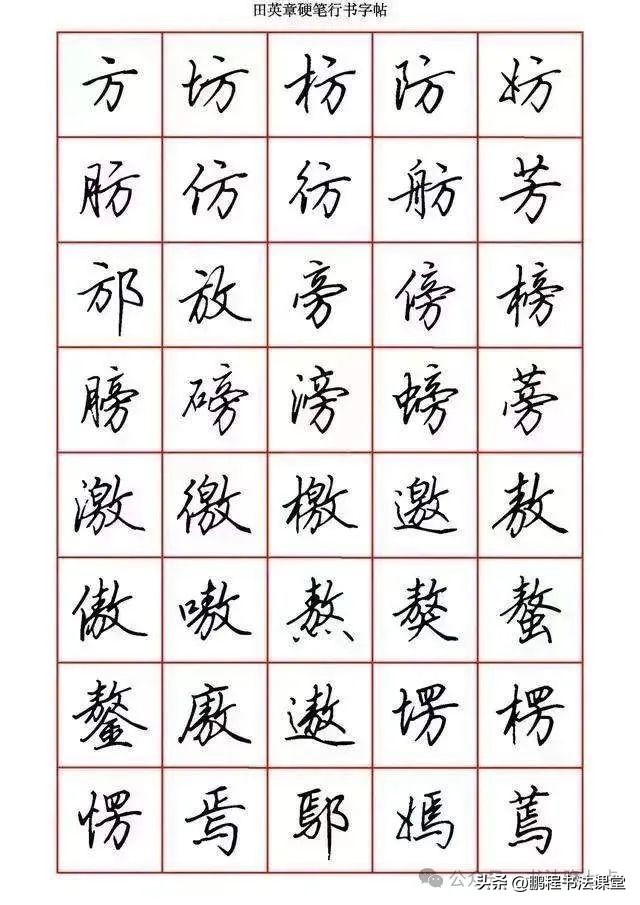 田英章硬笔行书字帖
方 坊 枋 防 妨
肪 仿 彷 舫 芳
邡 放 旁 傍 榜
膀 磅 滂 螃 蒡
激 徼 檄 邀 敖
傲 嗷 熬 獒 螯
鳌 廒 遨 塄 楞
愣 焉 鄢 嫣 蔫
头条 @鹏程书法课堂